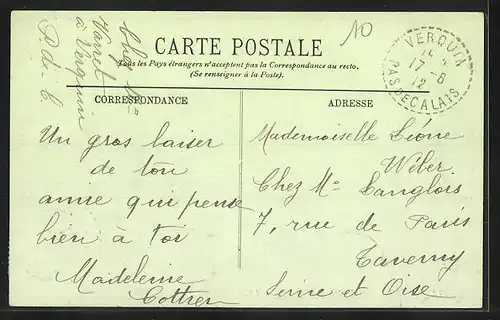 10
CARTE POSTALE
Tous les Pays étrangers n'acceptent pas la Correspondance au recto.
(Se renseigner à la Poste).
VERQUIN
17-8
12
PAS DE CALAIS
Chez Me
à Verquin
P. de C.
CORRESPONDANCE
Un gros baiser
de ton
amie qui pense
bien à toi
Madeleine
ADRESSE
Mademoiselle Léone
Weber
Chez Me Langlois
7, rue de Paris
Taverny
Seine et Oise